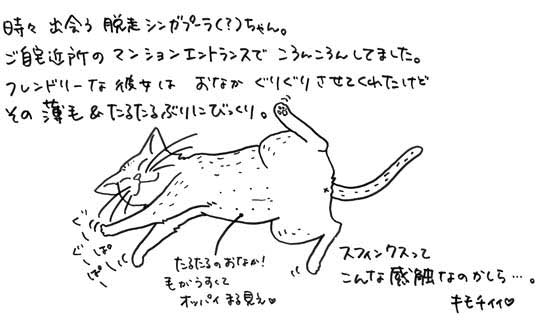 時々 出会う 脱走シンガプーラ(?)ちゃん。
ご自宅近所の マンションエントランスで ころんころんしてました。
フレンドリーな 彼女は おなか ぐりぐり させてくれたけど
その 薄毛&たるたるぶりにびっくり。
ぐーぱー
ぐーぱー
たるたるのおなか!
毛がうすくて
オッパイ まる見え♡
スフィンクスって
こんな感触なのかしら…。
キモチイイ♡